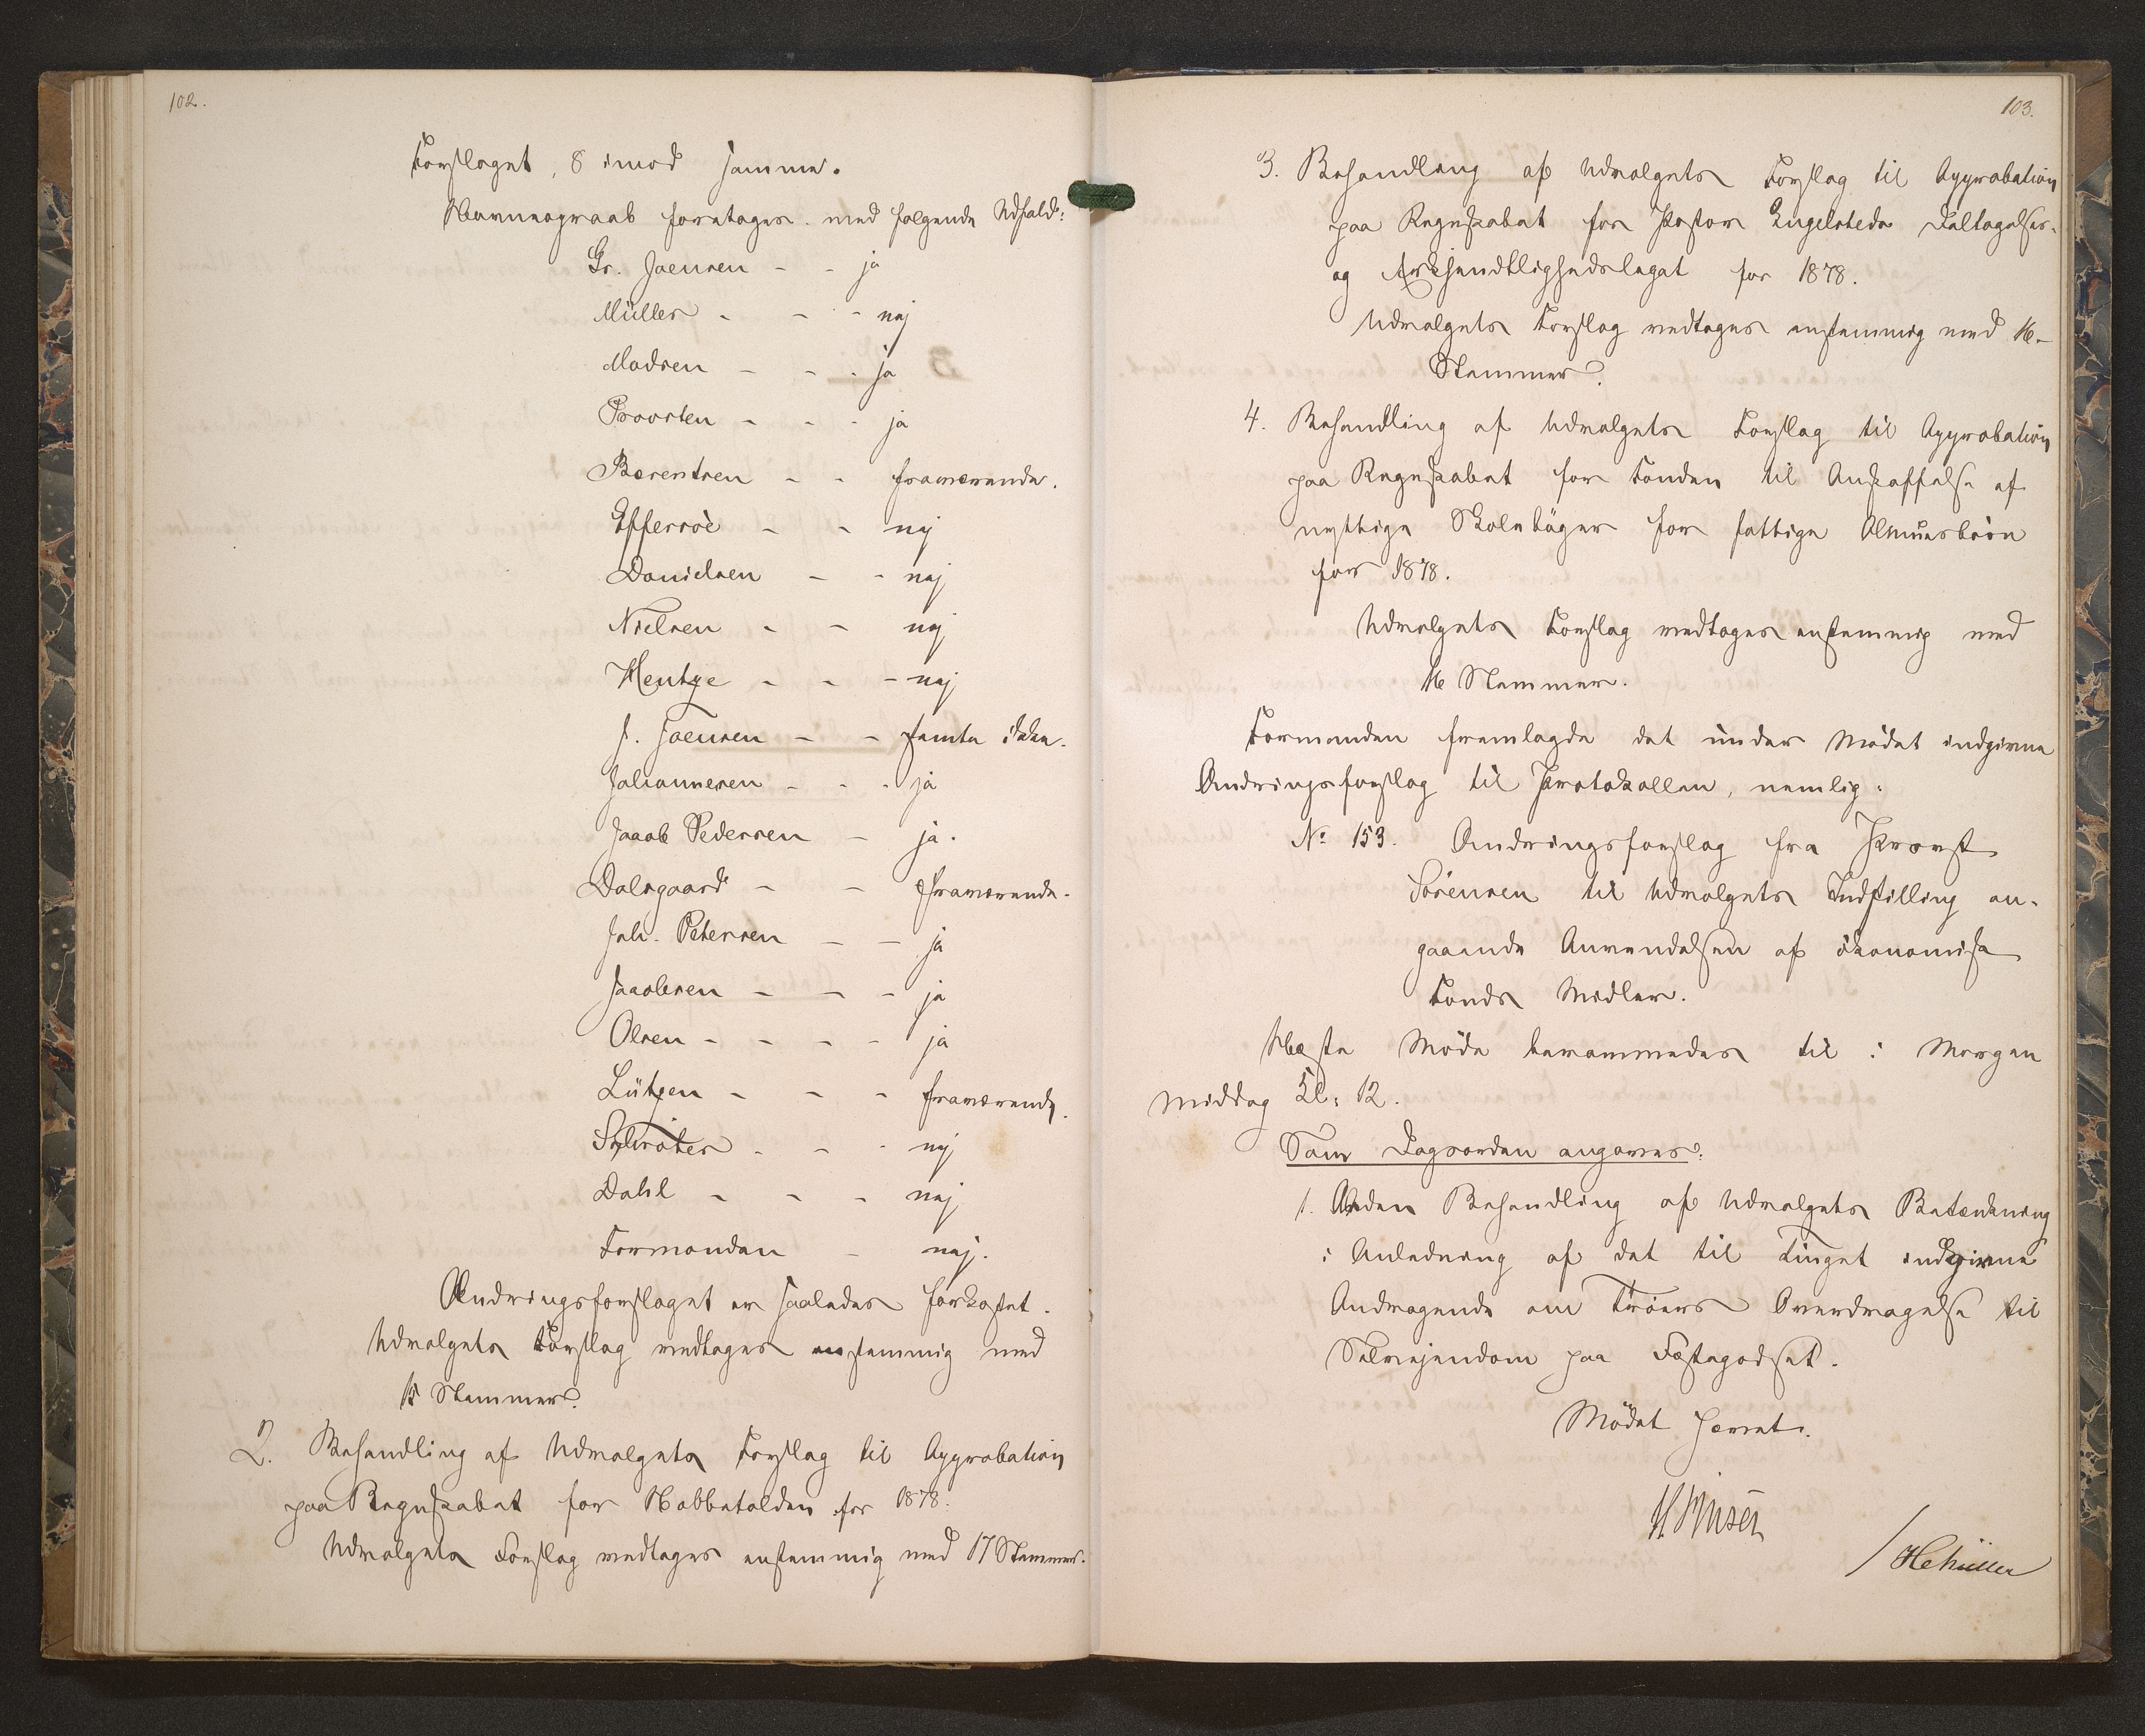 102.
Forslaget, 8 imod samme.
Navneopraab foretages med følgende Udfald:
Gr. Joensen - - ja
Müller - - - nej
Madsen - - - ja
Provsten - - - ja
Bærentsen - - fraværende.
Effersöe - - nej
Danielsen - - nej
Nielsen - - nej
Hentze - - - nej
J. Joensen - - stemte ikke.
Johannesen - - - ja
Jacob Pedersen - ja.
Dalsgaard - - fraværende.
Joh. Petersen - - ja
Jacobsen - - - ja
Olsen - - - - ja
Lützen - - - fraværende.
Schröter - - - nej
Dahl - - - nej
Formanden - nej.
Ændringsforslaget er saaledes forkastet.
Udvalgets Forslag vedtages enstemmig med
15 Stemmer.
2. Behandling af Udvalgets Forslag til Approbation
paa Regnskabet for Nebbetolden for 1878.
Udvalgets Forslag vedtages enstemmig med 17 Stemmer.
103.
3. Behandling af Udvalgets Forslag til Approbation
paa Regnskabet for Pastor Engelsteds Deltagelses-
og Erkjendtlighedslegat for 1878.
Udvalgets Forslag vedtages enstemmig med 16
Stemmer.
4. Behandling af Udvalgets Forslag til Approbation
paa Regnskabet for Fonden til Anskaffelse af
nyttige Skolebøger for fattige Almuesbörn
for 1878.
Udvalgets Forslag vedtages enstemmig med
16 Stemmer.
Formanden fremlagde det under Mödet indgivne
Ændringsforslag til Protokollen, nemlig:
No 153. Ændringsforslag fra Provst
Sörensen til Udvalgets Indstilling an-
gaaende Anvendelsen af ökonomisk
Fonds Midler.
Næste Möde berammedes til i Morgen
Middag Kl: 12.
Som Dagsorden angaves:
1. Anden Behandling af Udvalgets Betænkning
i Anledning af det til Tinget indgivne
Andragende om Tröers Overdragelse til
Selvejendom paa Fæstegodset.
Mödet hævet.
HMüller